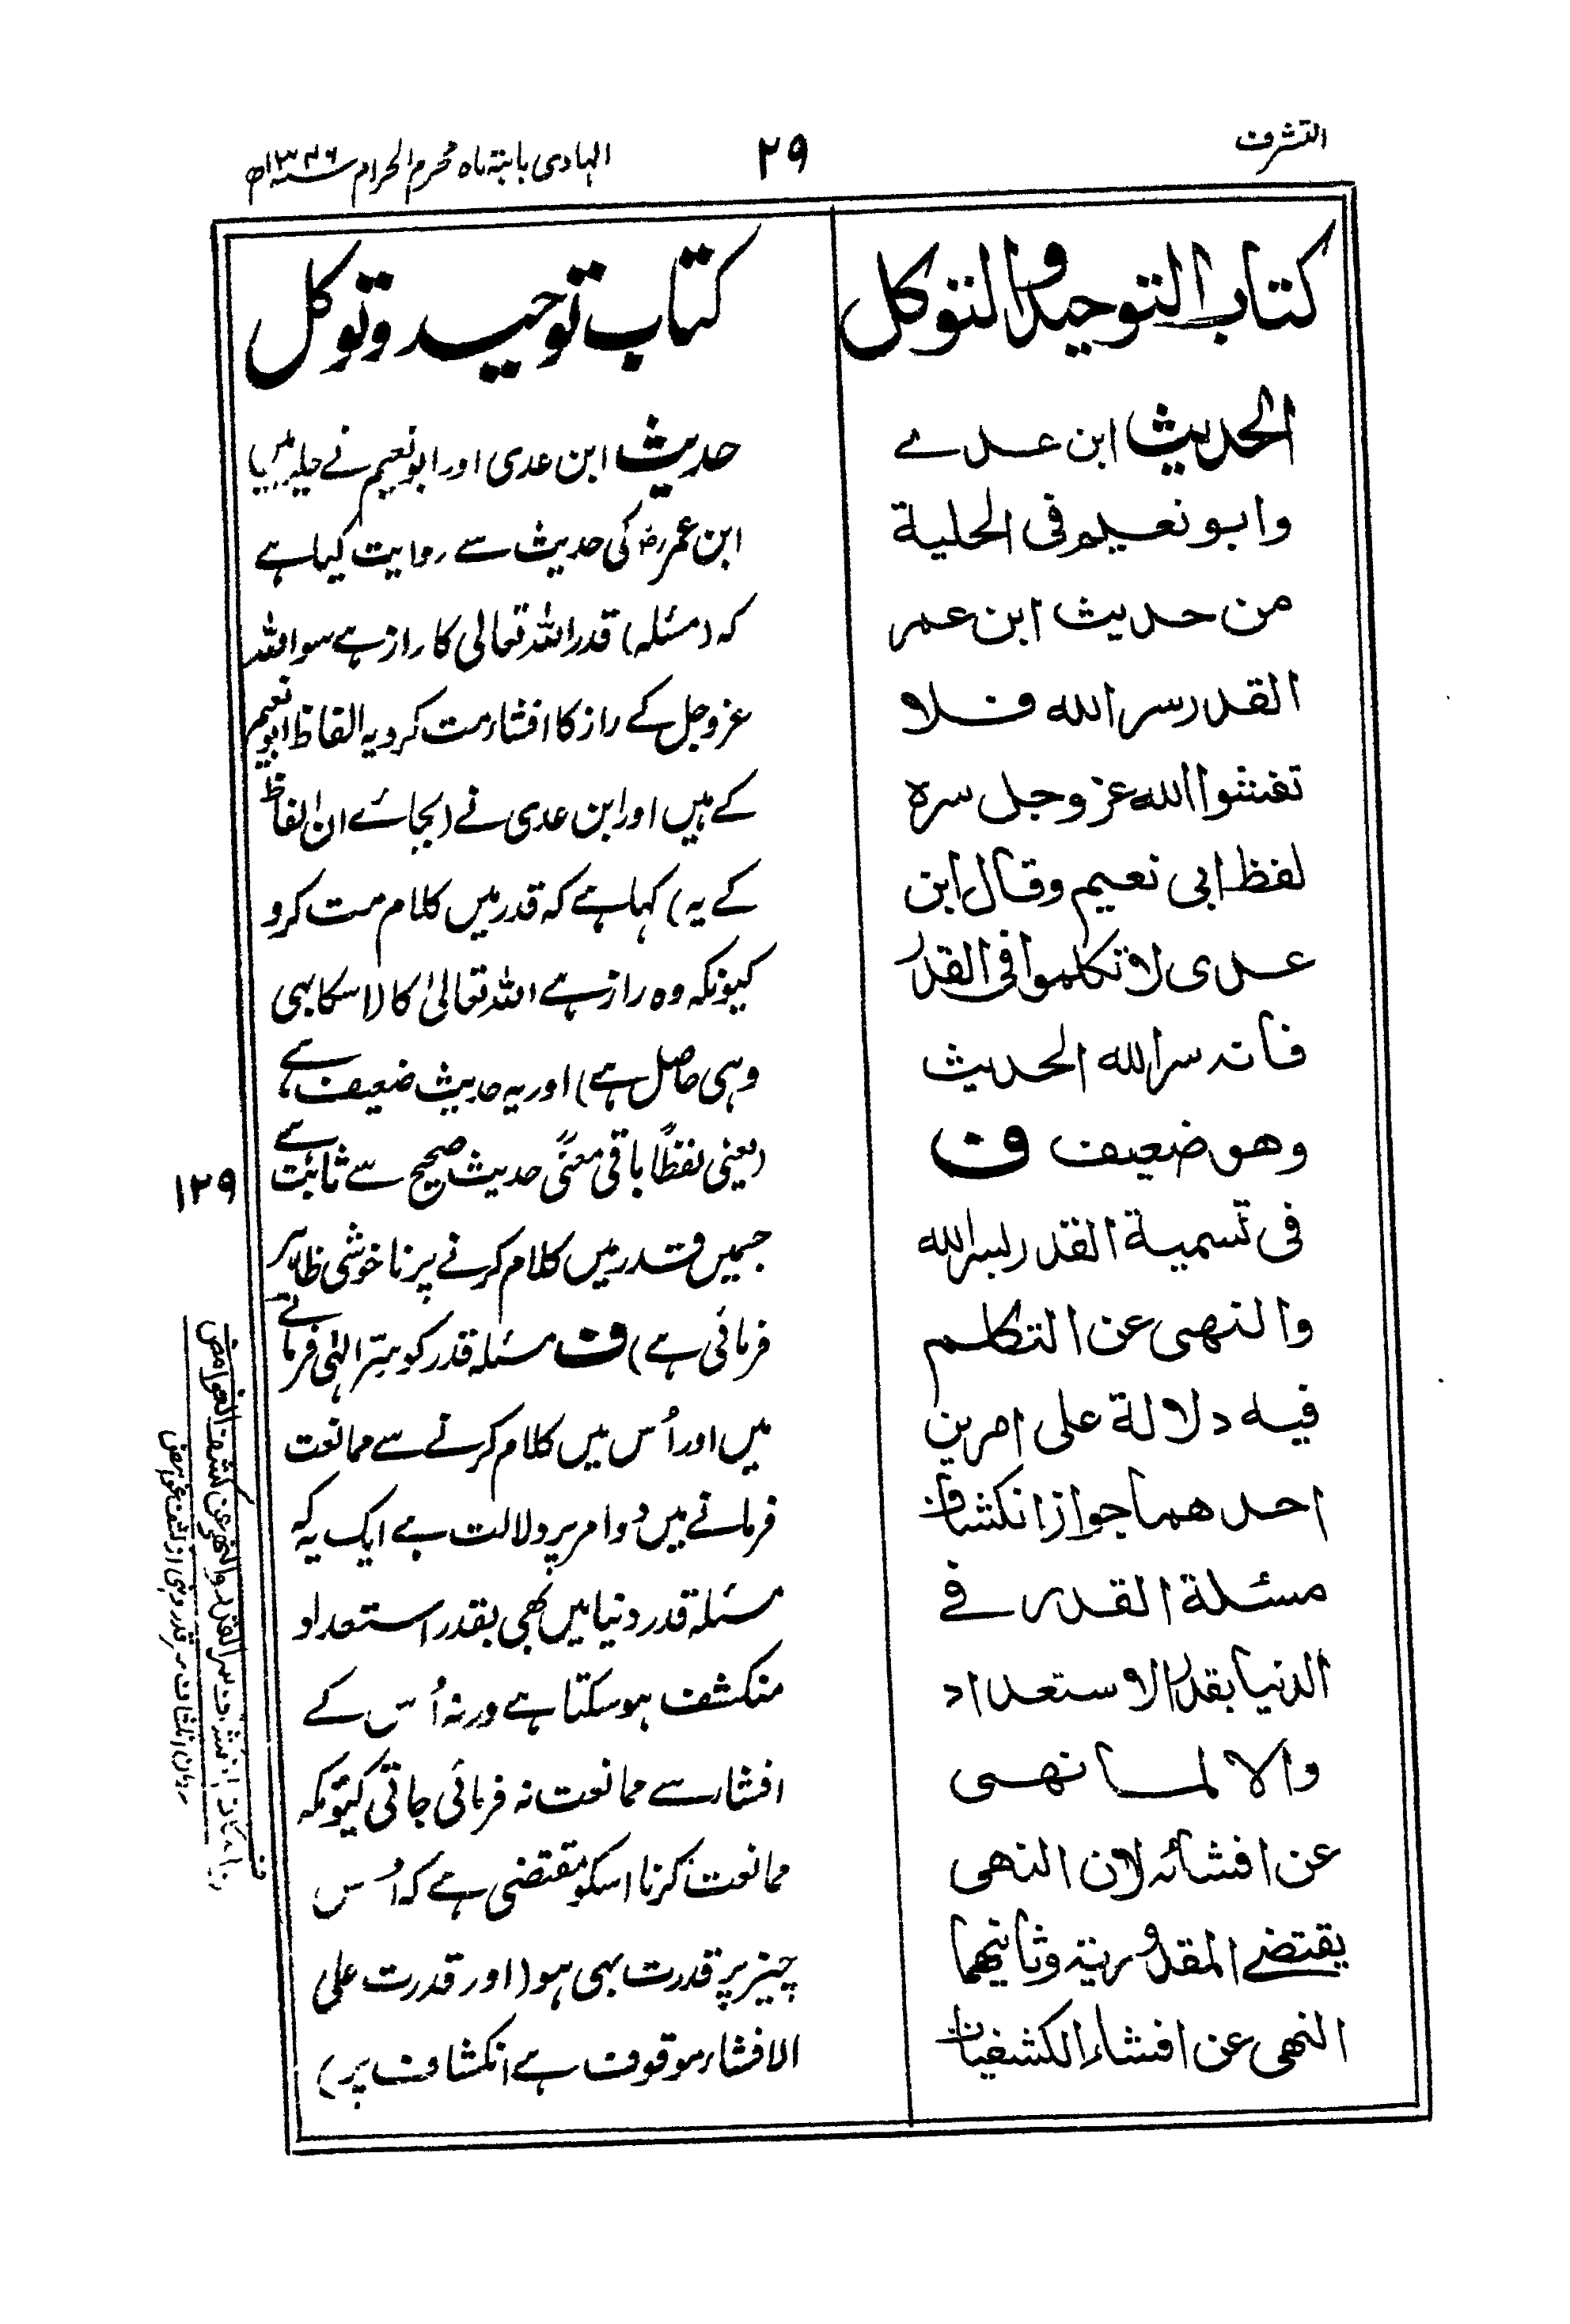 التشرف
٢٩
الہادی بابتہ ماہ محرم الحرام سنہ ١٣٤٦ھ
كتاب التوحيد والتوكل
الحديث ابن عدے
وابو نعيم فى الحلية
من حديث ابن عمر
القدر سر الله فلا
تفشوا الله عز وجل سره
لفظ ابى نعيم وقال ابن
عدى لا تكلموا فى القدر
فانه سر الله الحديث
وهو ضعيف ف
فى تسمية القدر بسر الله
والنهى عن التكلم
فيه دلالة على امرين
احدهما جواز انكشاف
مسئلة القدر فے
الدنيا بقدر الاستعداد
والا لما نهى
عن افشائه لان النهى
يقتضے المقدورية وثانيهما
النهى عن افشاء الكشفيات
کتاب توحید و توکل
حدیث ابن عدی اور ابو نعیم نے حلیہ میں
ابن عمرؓ کی حدیث سے روایت کیا ہے
کہ (مسئلہ) قدر اللہ تعالی کا راز ہے سو اللہ
عز وجل کے راز کا افشاء مت کرو یہ الفاظ ابو نعیم
کے ہیں اور ابن عدی نے (بجائے ان الفاظ
کے یہ) کہا ہے کہ قدر میں کلام مت کرو
کیونکہ وہ راز ہے اللہ تعالیٰ کا لا اسکا بہی
وہی حاصل ہے) اور یہ حدیث ضعیف ہے
(یعنی لفظاً باقی معنًی حدیث صحیح سے ثابت ہے
جسمیں قدر میں کلام کرنے پر ناخوشی ظاہر
فرمائی ہے) ف مسئلہ قدر کو سِرّ الٰہی فرمانے
میں اور اُس میں کلام کرنے سے ممانعت
فرمانے میں دو امر پر دلالت ہے ایک یہ کہ
مسئلہ قدر دنیا میں بھی بقدر استعداد
منکشف ہو سکتا ہے ورنہ اُس کے
افشار سے ممانعت نہ فرمائی جاتی کیونکہ
ممانعت کرنا اسکو مقتضی ہے کہ اُس
چیز پر قدرت بہی ہو (اور قدرت علی
الافشاء موقوف ہے انکشاف پر)
١٢٩